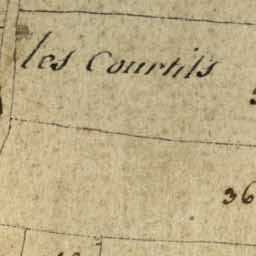 les Courtils
36